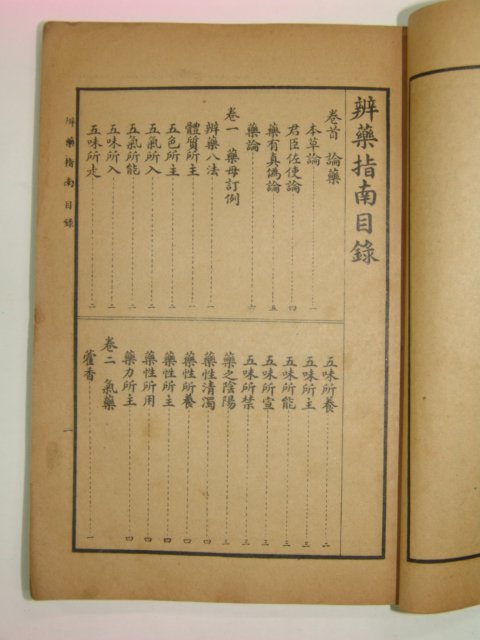 辨藥指南目錄
卷首 論藥
本草論 一
君臣佐使論 四
藥有真僞論 五
藥論 六
卷一 藥母訂例
辨藥八法 一
體質所主 一
五色所主 二
五氣所入 二
五氣所能 二
五味所入 二
五味所走 二
五味所養 二
五味所主 三
五味所能 三
五味所宣 三
五味所禁 三
藥之陰陽 三
藥性清濁 四
藥性所養 四
藥性所主 四
藥性所用 四
藥力所主 四
卷二 氣藥
藿香 一
辨藥指南 目錄
一